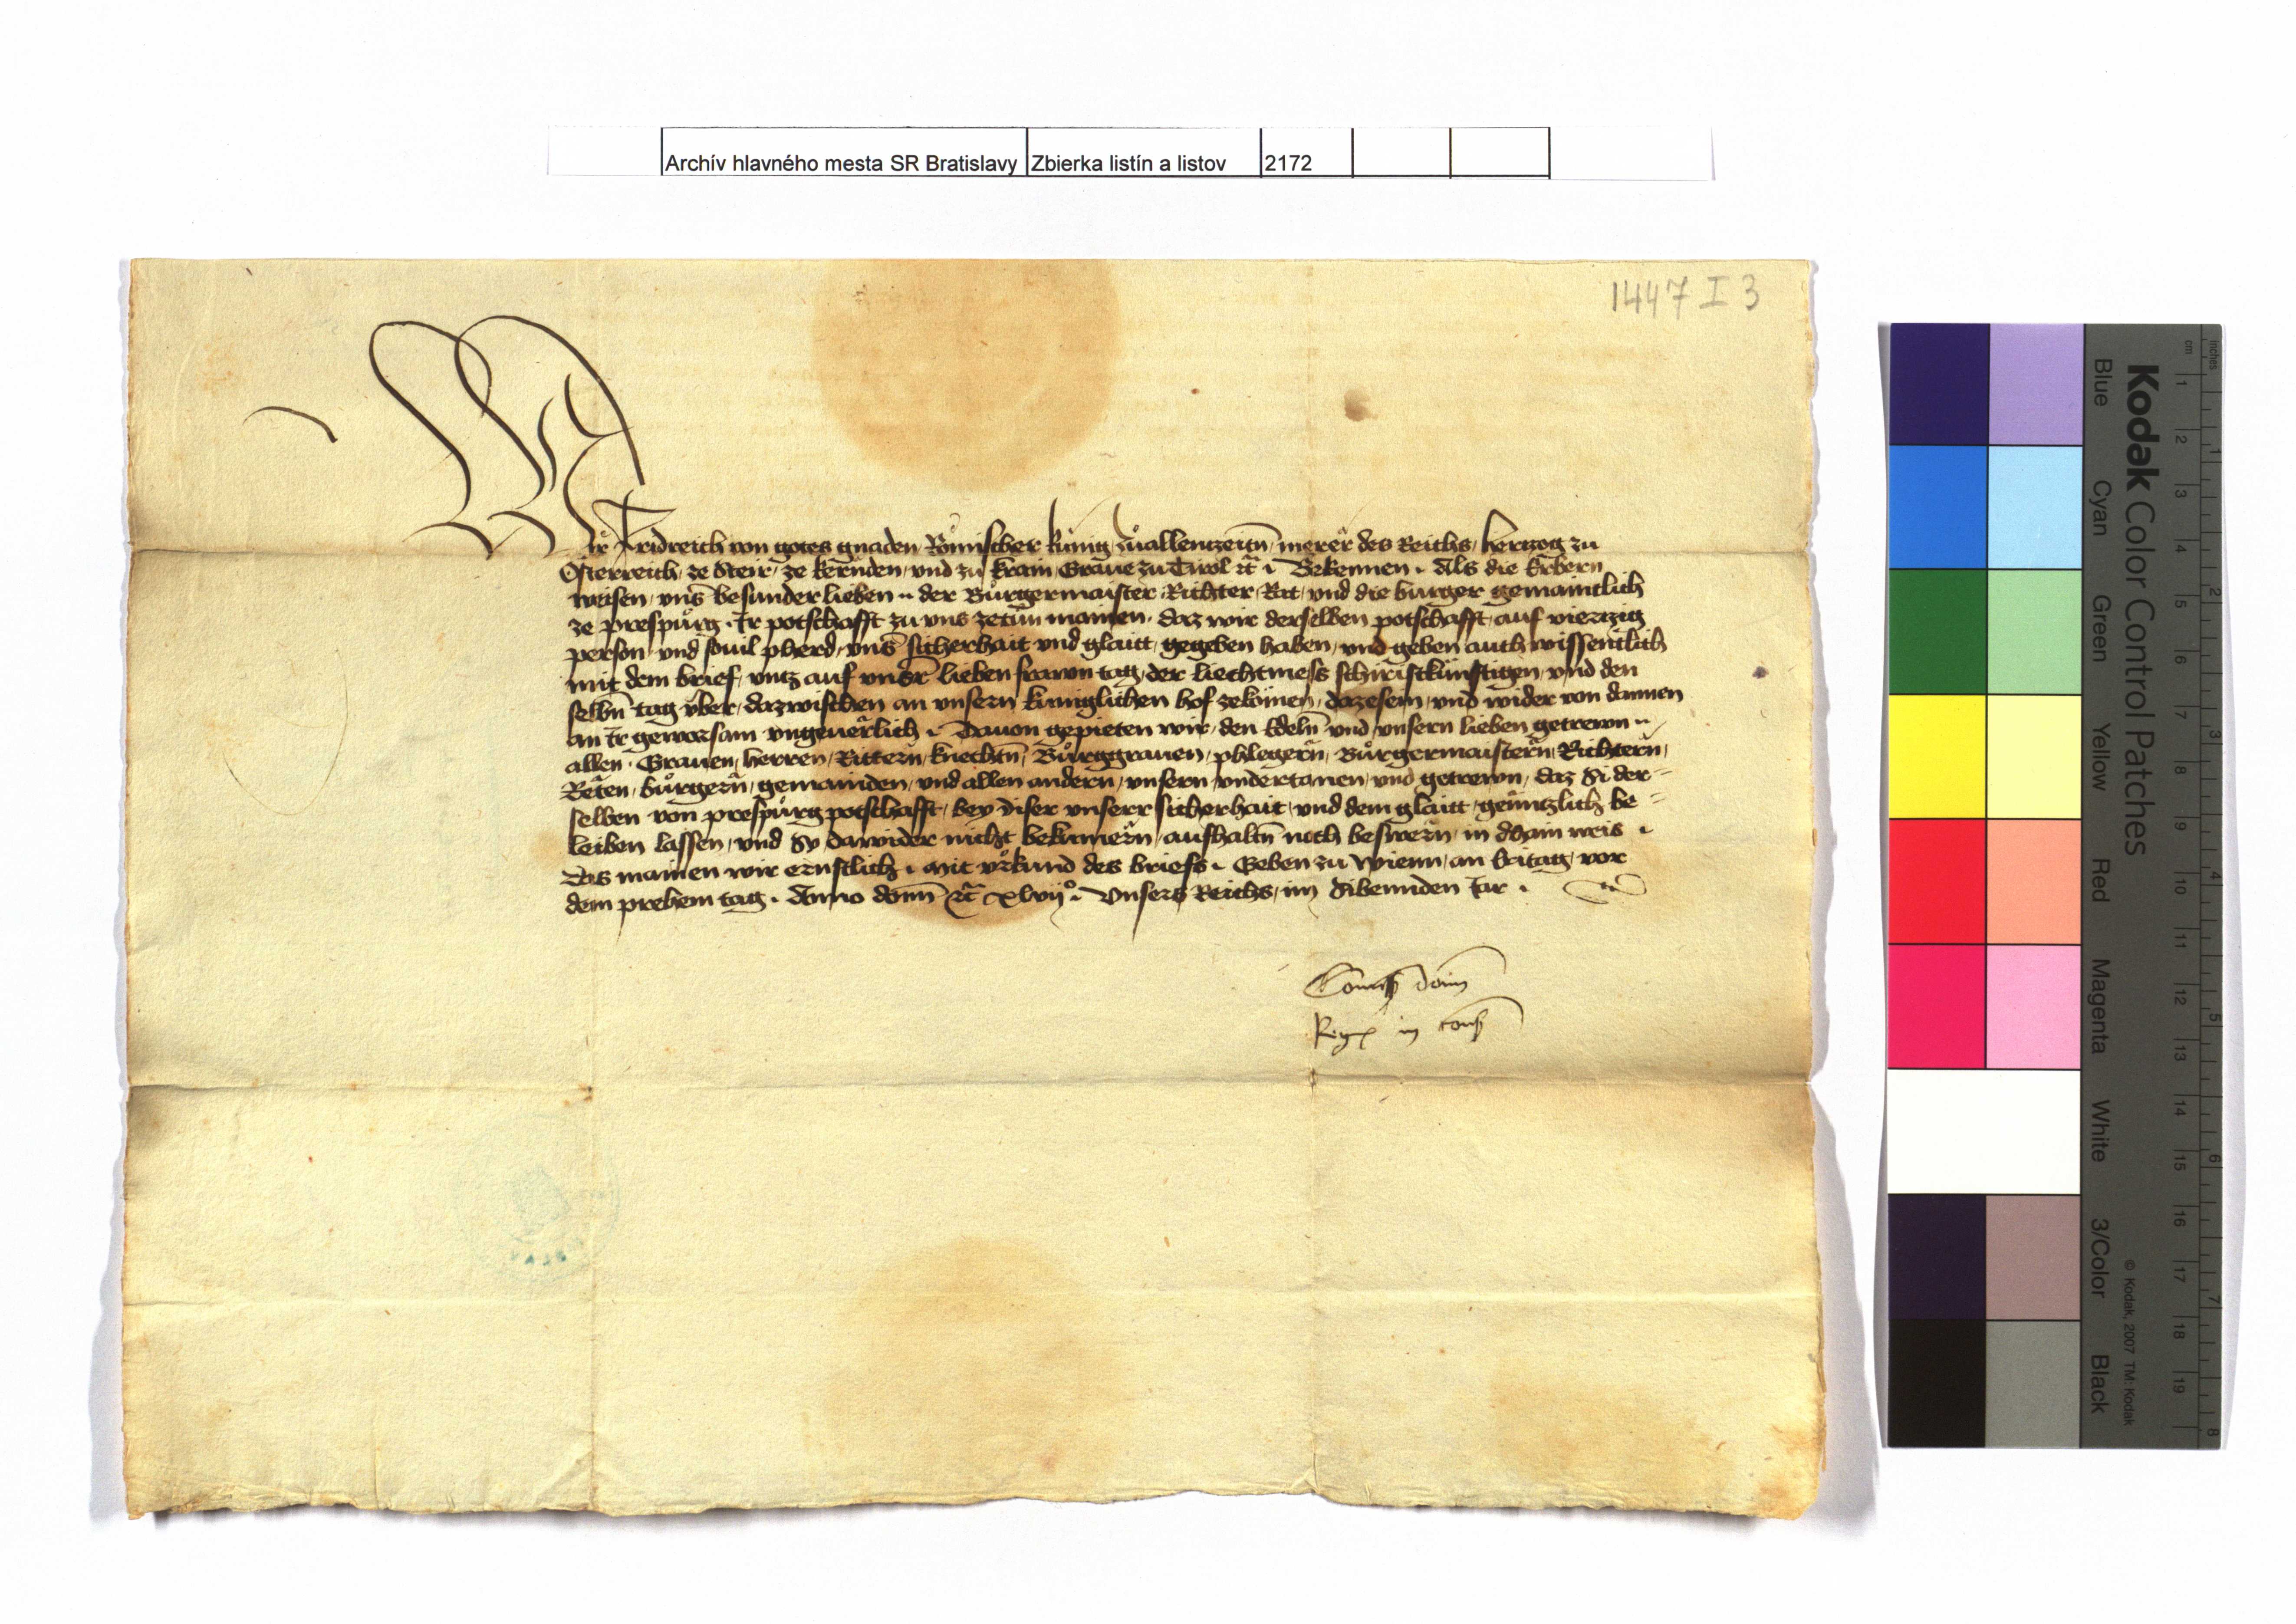 Archív hlavného mesta SR Bratislavy Zbierka listín a listov 2172
1447 I 3
Wir Fridreich von gotes gnaden Römischer kunig zuallenczeitn̄ merer des Reichs herczog zu
Österreich ze Steir ze kernden und zu krain Graue zu Tirol ꝛc̄ Bekennen. Als die Erbern
weisen uns̄ besunderlieben der Burgermaister Richter Rat und die burger gemaintlich
ze prespůrg. Ir potschafft zu uns zetůn mainen daz wir derselben potschafft auf vierczig
person und souil pherd uns̄ sicherhait und glaitt gegeben haben und geben auch wissentlich
mit dem brief untz auf unsr̄ lieben frawn tag der liechtmess schiristkunftigen und den
selbn̄ tag uber dazwischen an unsern kuniglichen hof zekömen dazesein und wider von dannen
an Ir gewarsam ungeuerlich. Dauon gepieten wir den Edeln̄ und unsern lieben getrewn
allen. Grauen herren Rittern knechtn̄ Bůrggrauen phlegern Bůrgermaistern Richtern
Reten burgern gemainden und allen andern unsern undertanen und getrewn daz Si der=
selben von prespůrg potschafft bey diser unserr sicherhait und dem glaitt genntzlich be=
leiben lassen und Sy dawider nicht bekumern aufhaltn̄ noch beswern in dhain weis
Das mainen wir ernstlich. Mit urkund des briefs. Geben zu Wienn an Eritag vor
dem prehem tag. Anno domī ꝛc̄ xlvijᵒ. Unsers Reichs im Sibennden Jar.
Com̄iss domī
Regis in cons
Kodak Color Control Patches
Blue Cyan Green Yellow Red Magenta White 3/Color Black
© Kodak, 2007 TM: Kodak
inches 1 2 3 4 5 6 7 8
cm 1 2 3 4 5 6 7 8 9 10 11 12 13 14 15 16 17 18 19